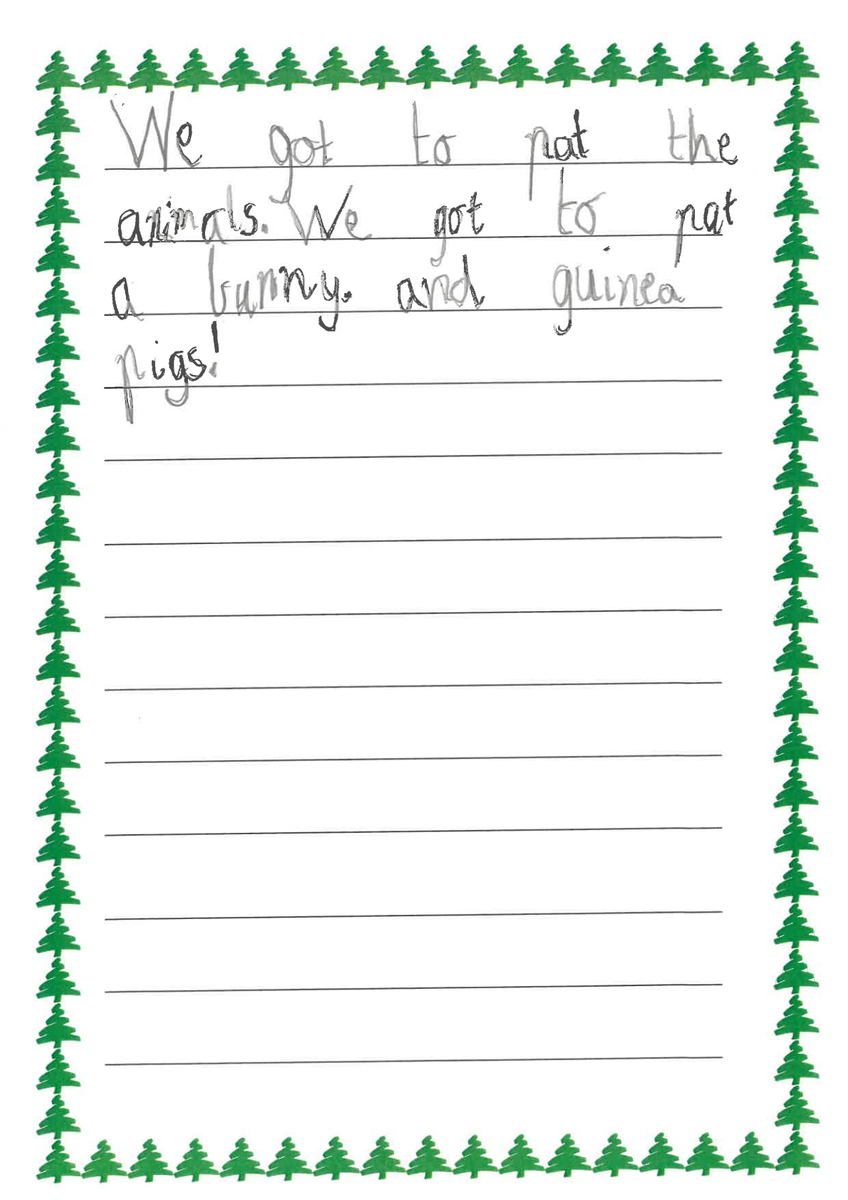 We got to pat the
animals. We got to pat
a bunny. and guinea
pigs!